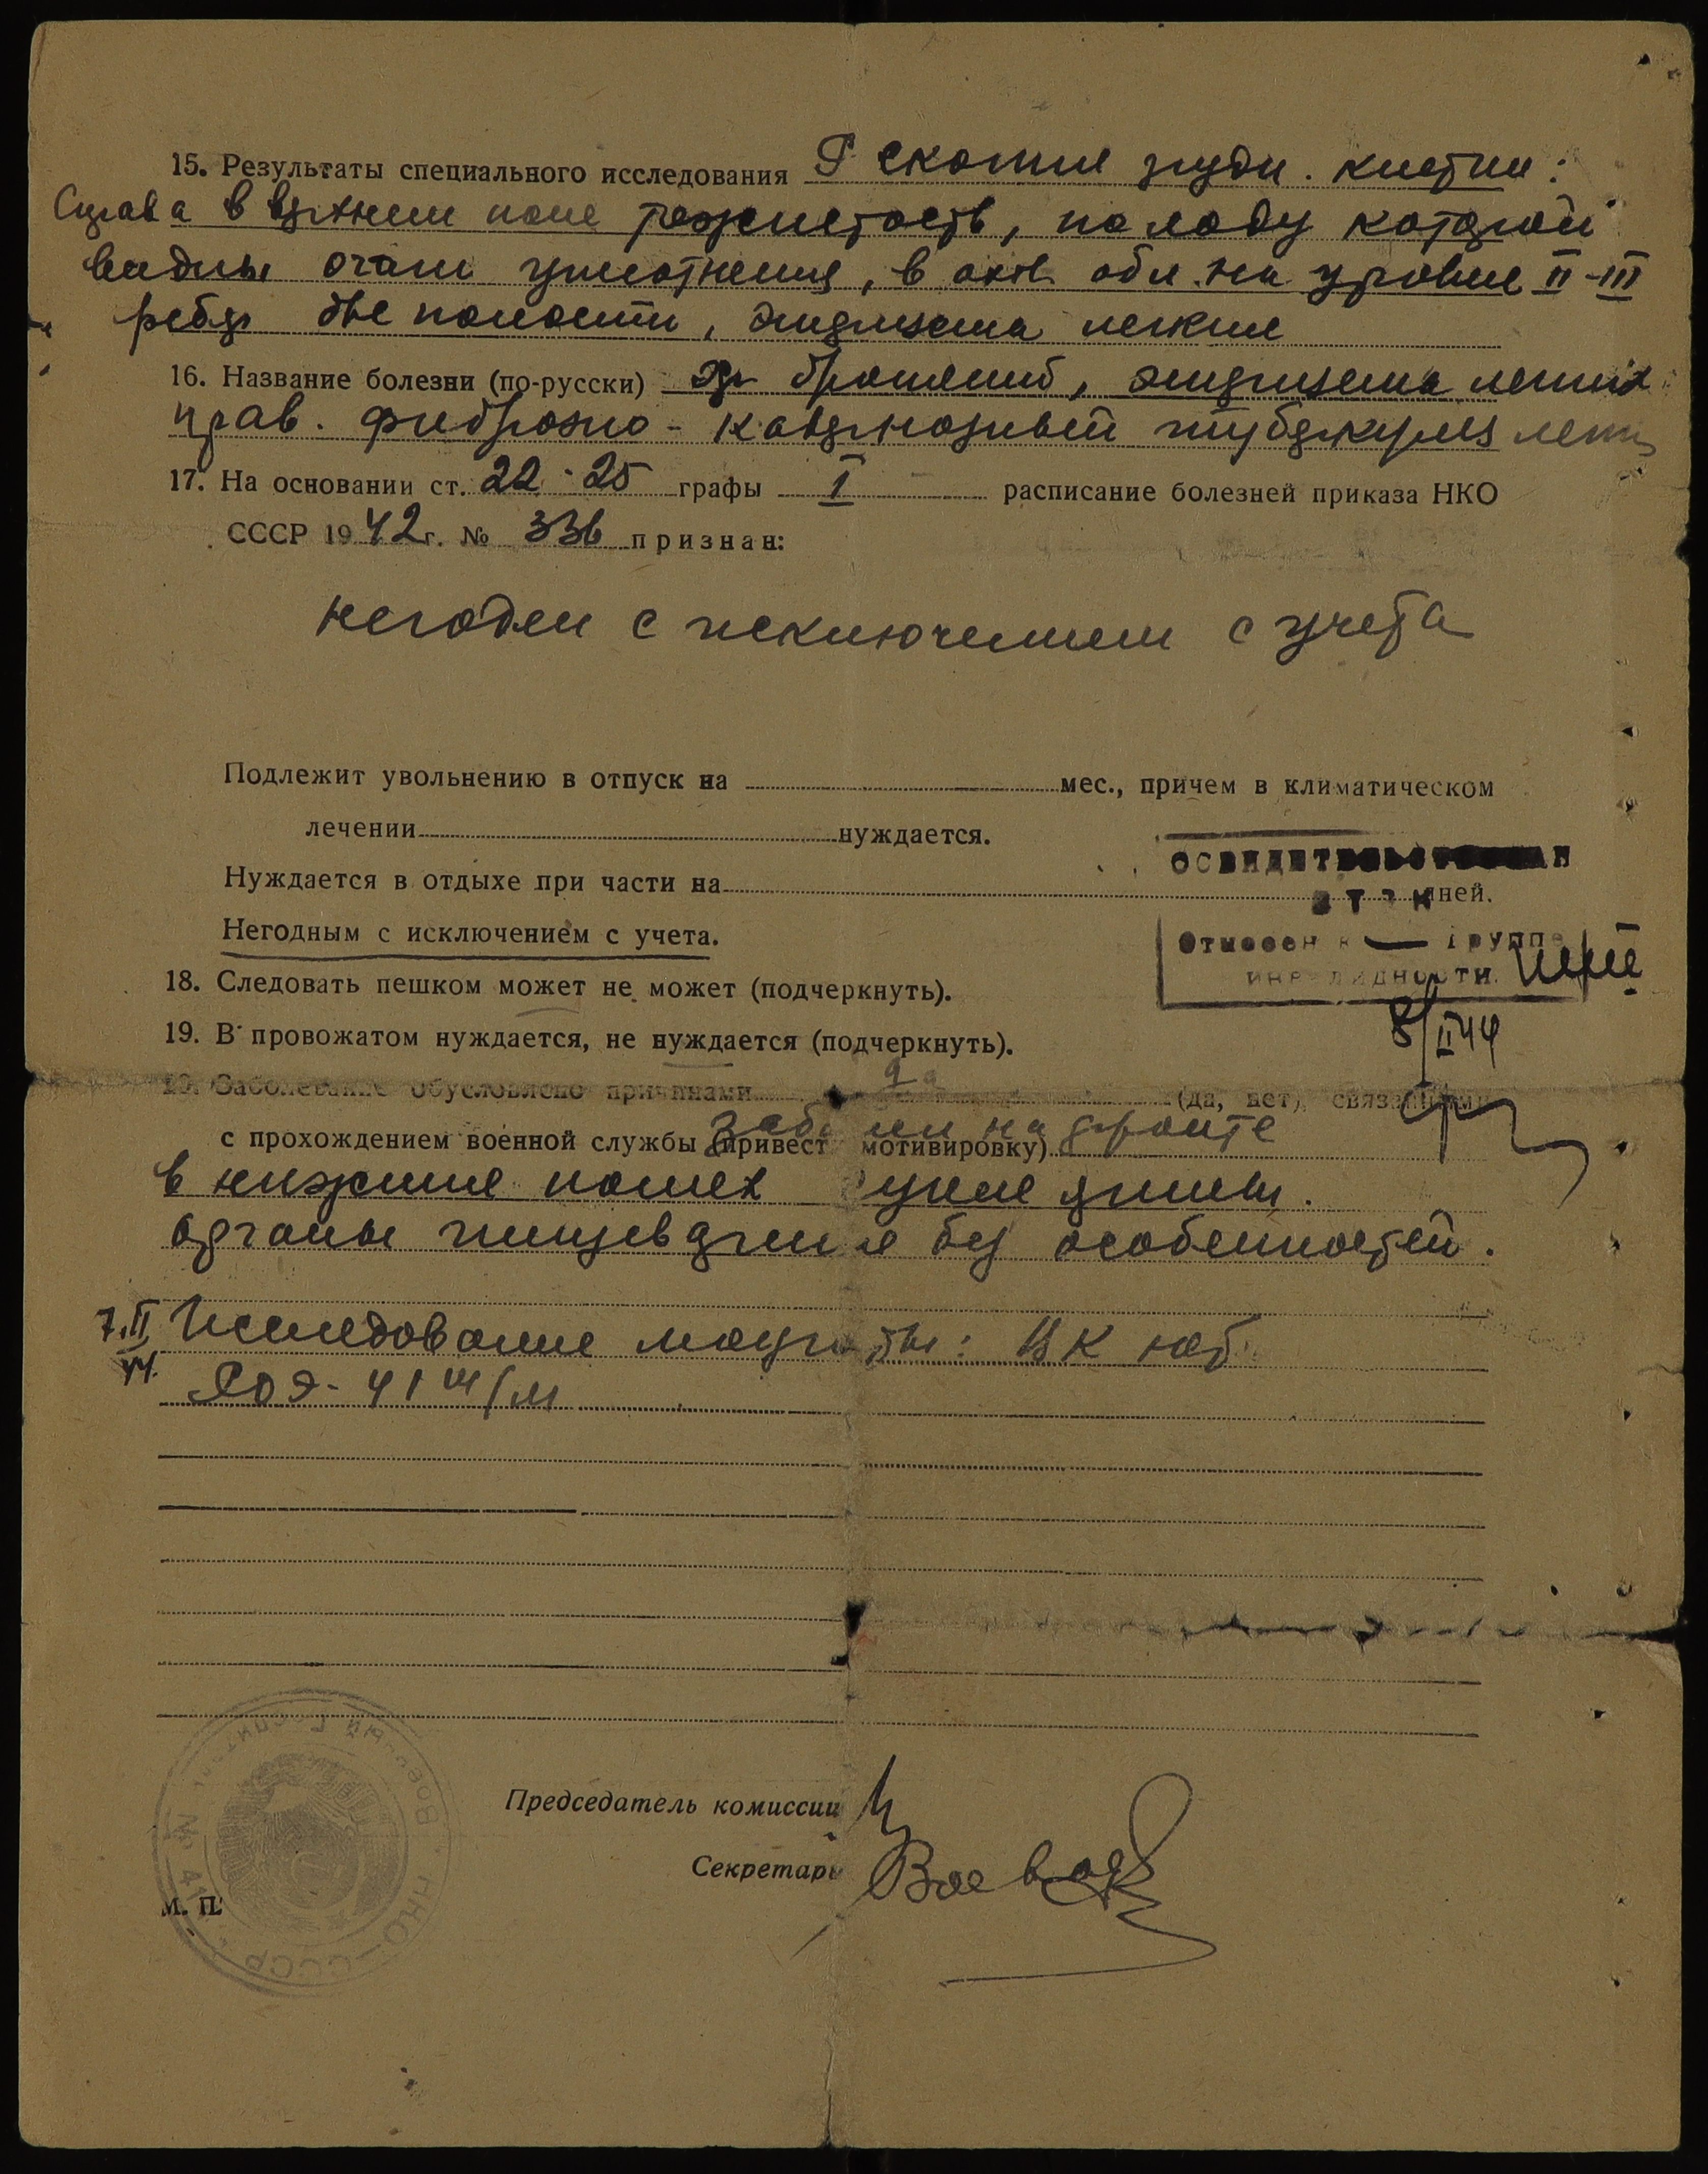 15. Результаты специального исследования R скопия грудн. клетки:
Справа в верхнем поле тяжистость, по ходу которой
видны очаги уплотнения, в обл. на уровне II-III
ребра две полости, эмфизема легких
16. Название болезни (по-русски) Хр бронхит, эмфизема легких
прав. фиброзно-кавернозный туберкулез легк
17. На основании ст. 22-25 графы I расписание болезней приказа НКО
СССР 1942 г. № 336 признан:
негоден с исключением с учета
Подлежит увольнению в отпуск на мес., причем в климатическом
лечении нуждается.
Нуждается в отдыхе при части на дней.
Негодным с исключением с учета.
ОСВИДЕТЕЛЬСТВОВАН
ВТЭК
Отнесен к — группе
инвалидности.
8/II 44
18. Следовать пешком может не может (подчеркнуть).
19. В провожатом нуждается, не нуждается (подчеркнуть).
20. Заболевание обусловлено причинами да (да, нет), связанными
с прохождением военной службы (привест мотивировку) на фронте
в нижних полях сухие хрипы.
органы пищеварения без особенностей.
7.II 44. Исследование мокроты: ВК
РОЭ - 41 м/м
Председатель комиссии
Секретарь
М. П.
НКО — СССР